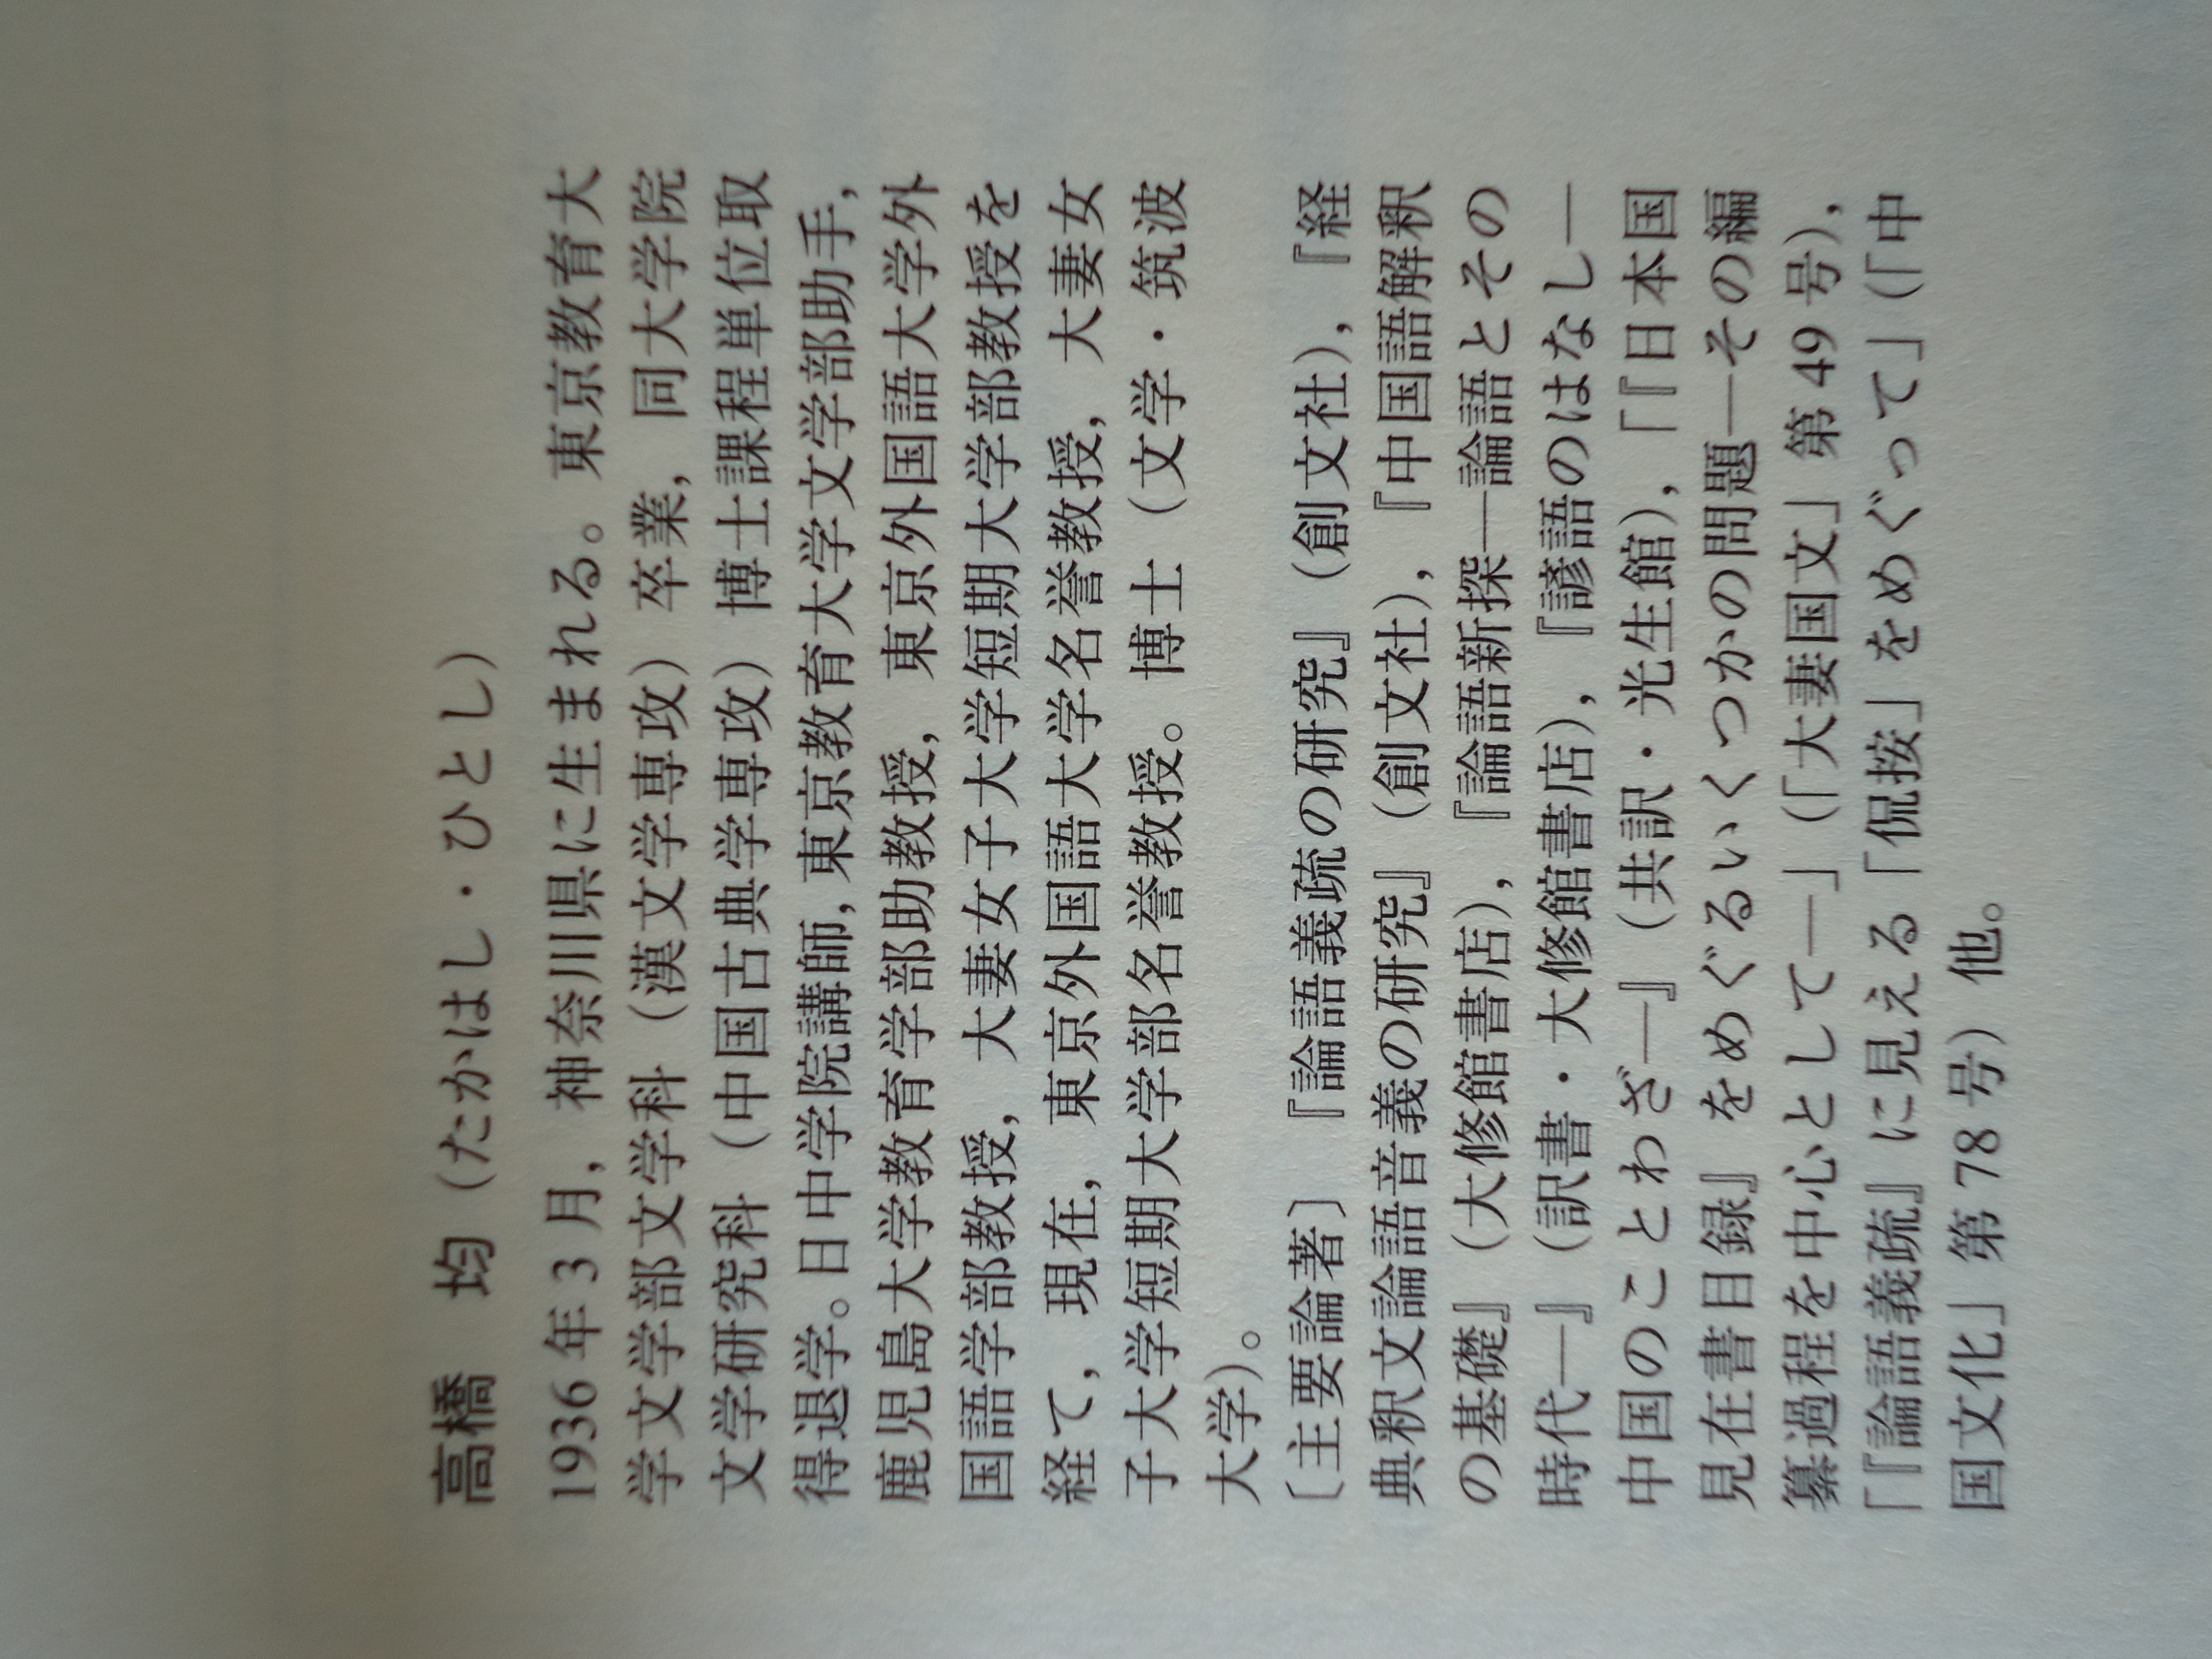 高橋 均（たかはし・ひとし）
1936年3月，神奈川県に生まれる。東京教育大
学文学部文学科（漢文学専攻）卒業，同大学院
文学研究科（中国古典学専攻）博士課程単位取
得退学。日中学院講師，東京教育大学文学部助手，
鹿児島大学教育学部助教授，東京外国語大学外
国語学部教授，大妻女子大学短期大学部教授を
経て，現在，東京外国語大学名誉教授，大妻女
子大学短期大学部名誉教授。博士（文学・筑波
大学）。
〔主要論著〕『論語義疏の研究』（創文社），『経
典釈文論語音義の研究』（創文社），『中国語解釈
の基礎』（大修館書店），『論語新探―論語とその
時代―』（訳書・大修館書店），『諺語のはなし―
中国のことわざ―』（共訳・光生館），「『日本国
見在書目録』をめぐるいくつかの問題―その編
纂過程を中心として―」（「大妻国文」第49号），
「『論語義疏』に見える「侃按」をめぐって」（「中
国文化」第78号）他。